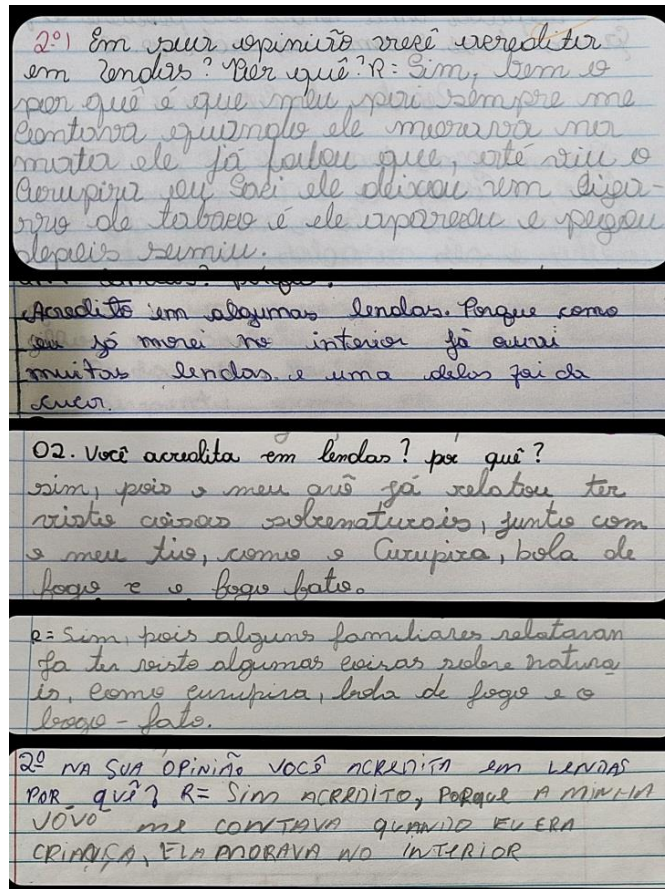 2º) Em sua opinião você acreditar
em lendas? Por quê? R= Sim, bem o
por quê é que meu pai sempre me
contava quando ele morava na
mata ele já falou que, até viu o
Curupira ou Saci ele deixou um cigar-
rro de tabaco é ele apareceu e pegou
depois sumiu.
Acredito em algumas lendas. Porque como
eu só morei no interior já ouvi
muitas lendas. e uma delas foi da
cuca.
02. Você acredita em lendas? por quê?
sim, pois o meu avô já relatou ter
visto coisas sobrenaturais, junto com
o meu tio, como o Curupira, bola de
fogo e o fogo fato.
R= Sim, pois alguns familiares relataran
ja ter visto algumas coisas sobre natura
is, como curupira, bola de fogo e o
fogo-fato.
2º NA SUA OPINIÃO VOCÊ ACREDITA em LENDAS
POR QUÊ? R= Sim ACREDITO, PORQUE A MINHA
VOVO me CONTAVA QUANDO EU ERA
CRIANÇA, ELA MORAVA NO INTERIOR